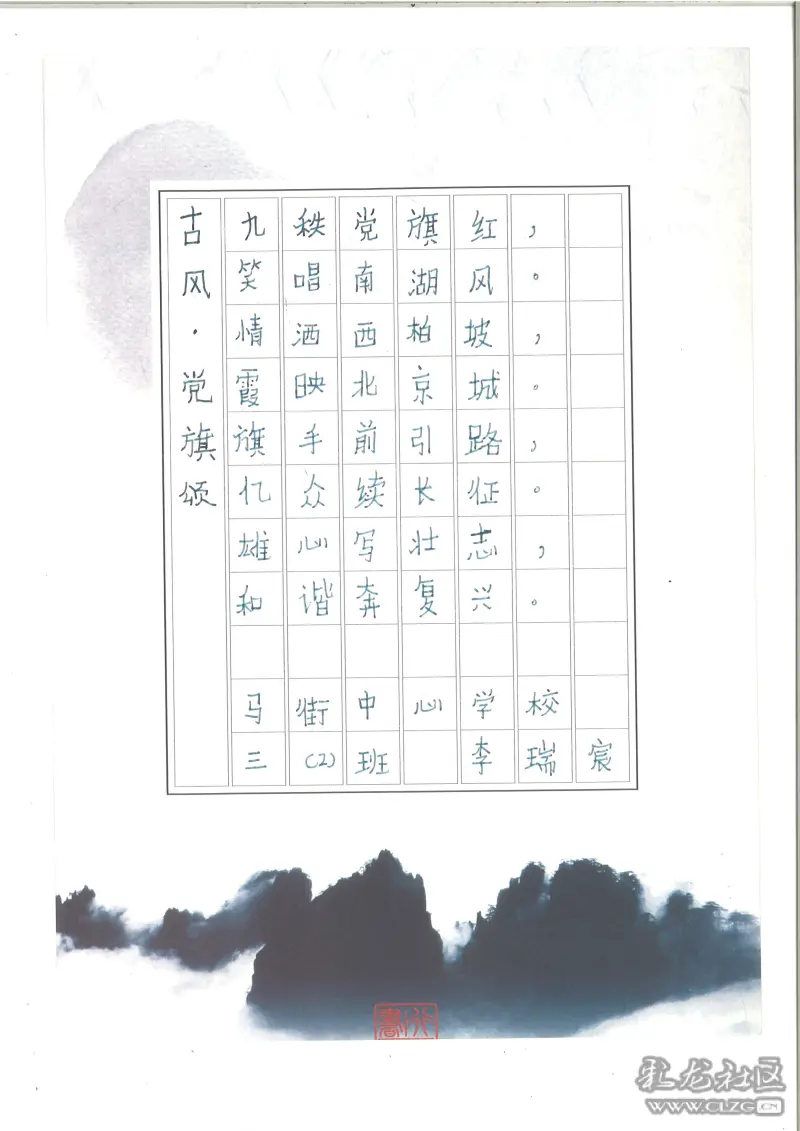 古风·党旗颂
九秩党旗红，
笑唱南湖风。
情洒西柏坡，
霞映北京城。
旗手前引路，
亿众续长征。
雄心写壮志，
和谐奔复兴。
马街中心学校
三（2）班 李瑞宸
彩龙社区
WWW.CLZG.CN